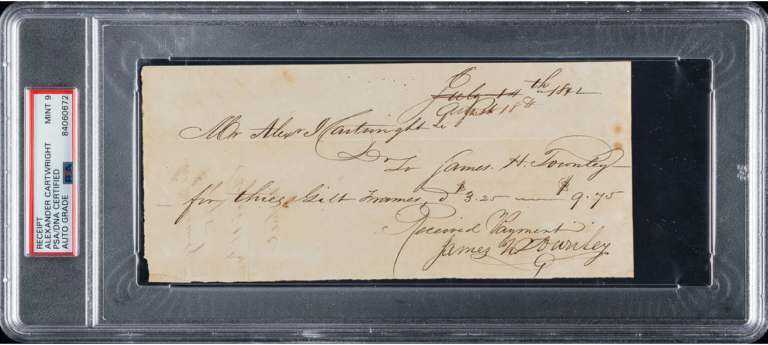 RECEIPT
ALEXANDER CARTWRIGHT
PSA/DNA CERTIFIED
AUTO GRADE
MINT 9
84060672
PSA
July 14th 1842
18th
Mr Alexr J Cartwright
Dr To James. H. Townley
for three Gilt Frames, $3.25 $9.75
Received Payment
James H Townley